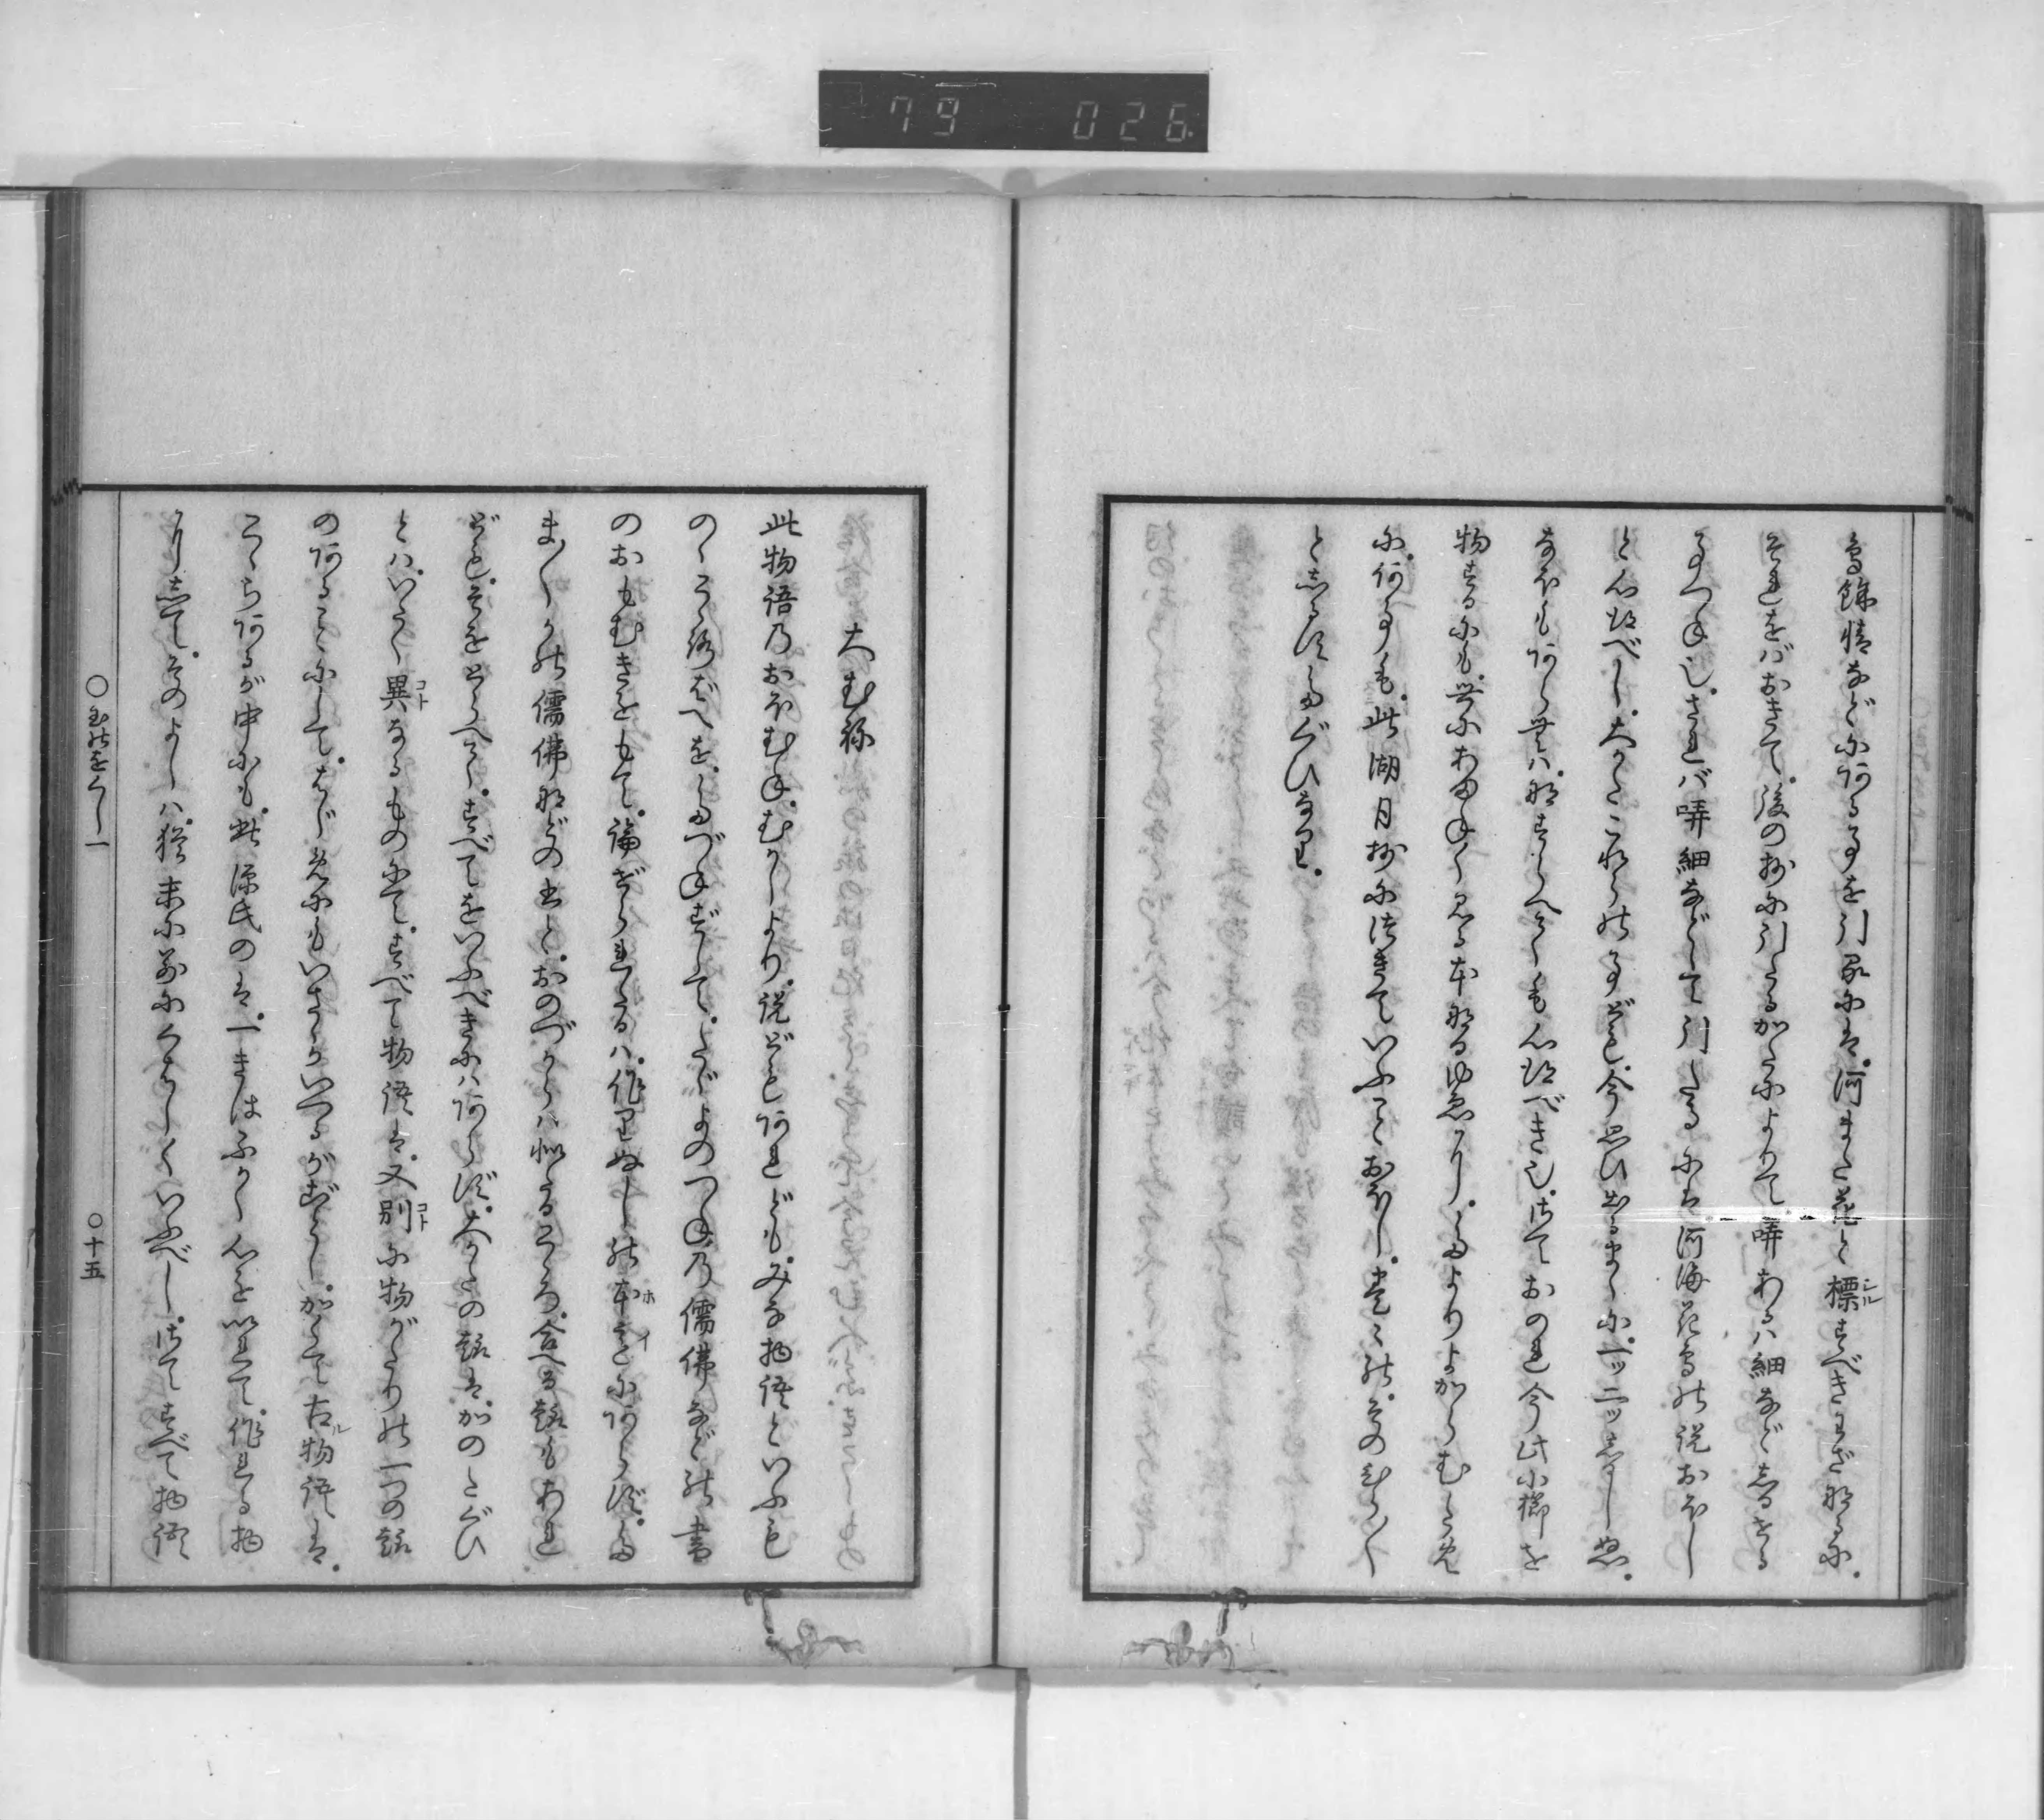 79 026
鳥餘情などにある事を引るには、河また花と標すべきわざなるに、
それをばおきて、後の抄に引たるかたによりて、哢あるは細などしるせる
事つね也、されば哢細などとて引たるには、河海花鳥の説おほし
と心得べし、大かたこれらの事ども、今思ひ出るまゝに、一ッ二ッしるしぬ、
なほもあらむは、なずらへても心得べき也、さておのれ今此小櫛を
物するにも、世にあまねく見る本なるゆゑに、たよりよからむため
に、何事も、此湖月抄につきていふことおほし、巻々の、そのひら〳〵
としるすたぐひなり、
大むね
此物語のおほむね、むかしより、説どもあれども、みな物語といふも
のゝこゝろばへを、たづねずして、たゞよのつねの儒佛などの書
のおもむきをもて、論ぜられたるは、作りぬしの本意にあらず、た
ま〳〵かの儒佛などの書と、おのづからは似たるこゝろ、合へる趣もあれ
ども、そをとらへて、すべてをいふべきにはあらず、大かたの趣は、かのたぐひ
とは、いたく異なるものにて、すべて物語は、又別に物がたりの一つの趣
のあることにして、はじめにもいさゝかいへるがごとし、かくて古物語は、
こゝらあるが中にも、此源氏のは、一きはふかく心をいれて、作れる物
にして、そのよしは、猶末に別にくはしくいふべし、さてすべて物語
○玉のをぐし一 ○十五